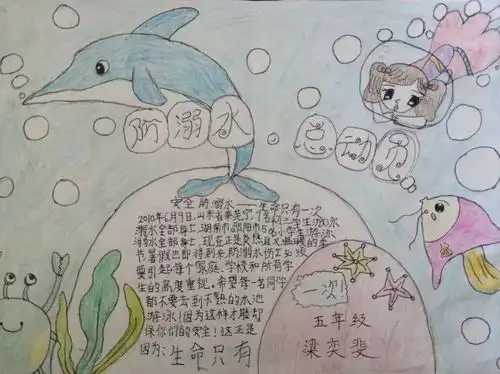 防溺水
总动员
安全防溺水——生命只有一次
2010年6月9日,山东省莱芜
溺水全部身亡,湖南市邵阳市5名小学生游泳
溺水全部身亡,现在正是炎热且又
节暑假也即将到来,防溺水伤亡必须
要引起每个家庭、学校和所有学
生的高度重视。希望每一名同学
都不要去到不熟的水池
游泳!因为这样才能却
保你们的安全!这正是
因为:生命只有
一次!
五年级
梁奕斐